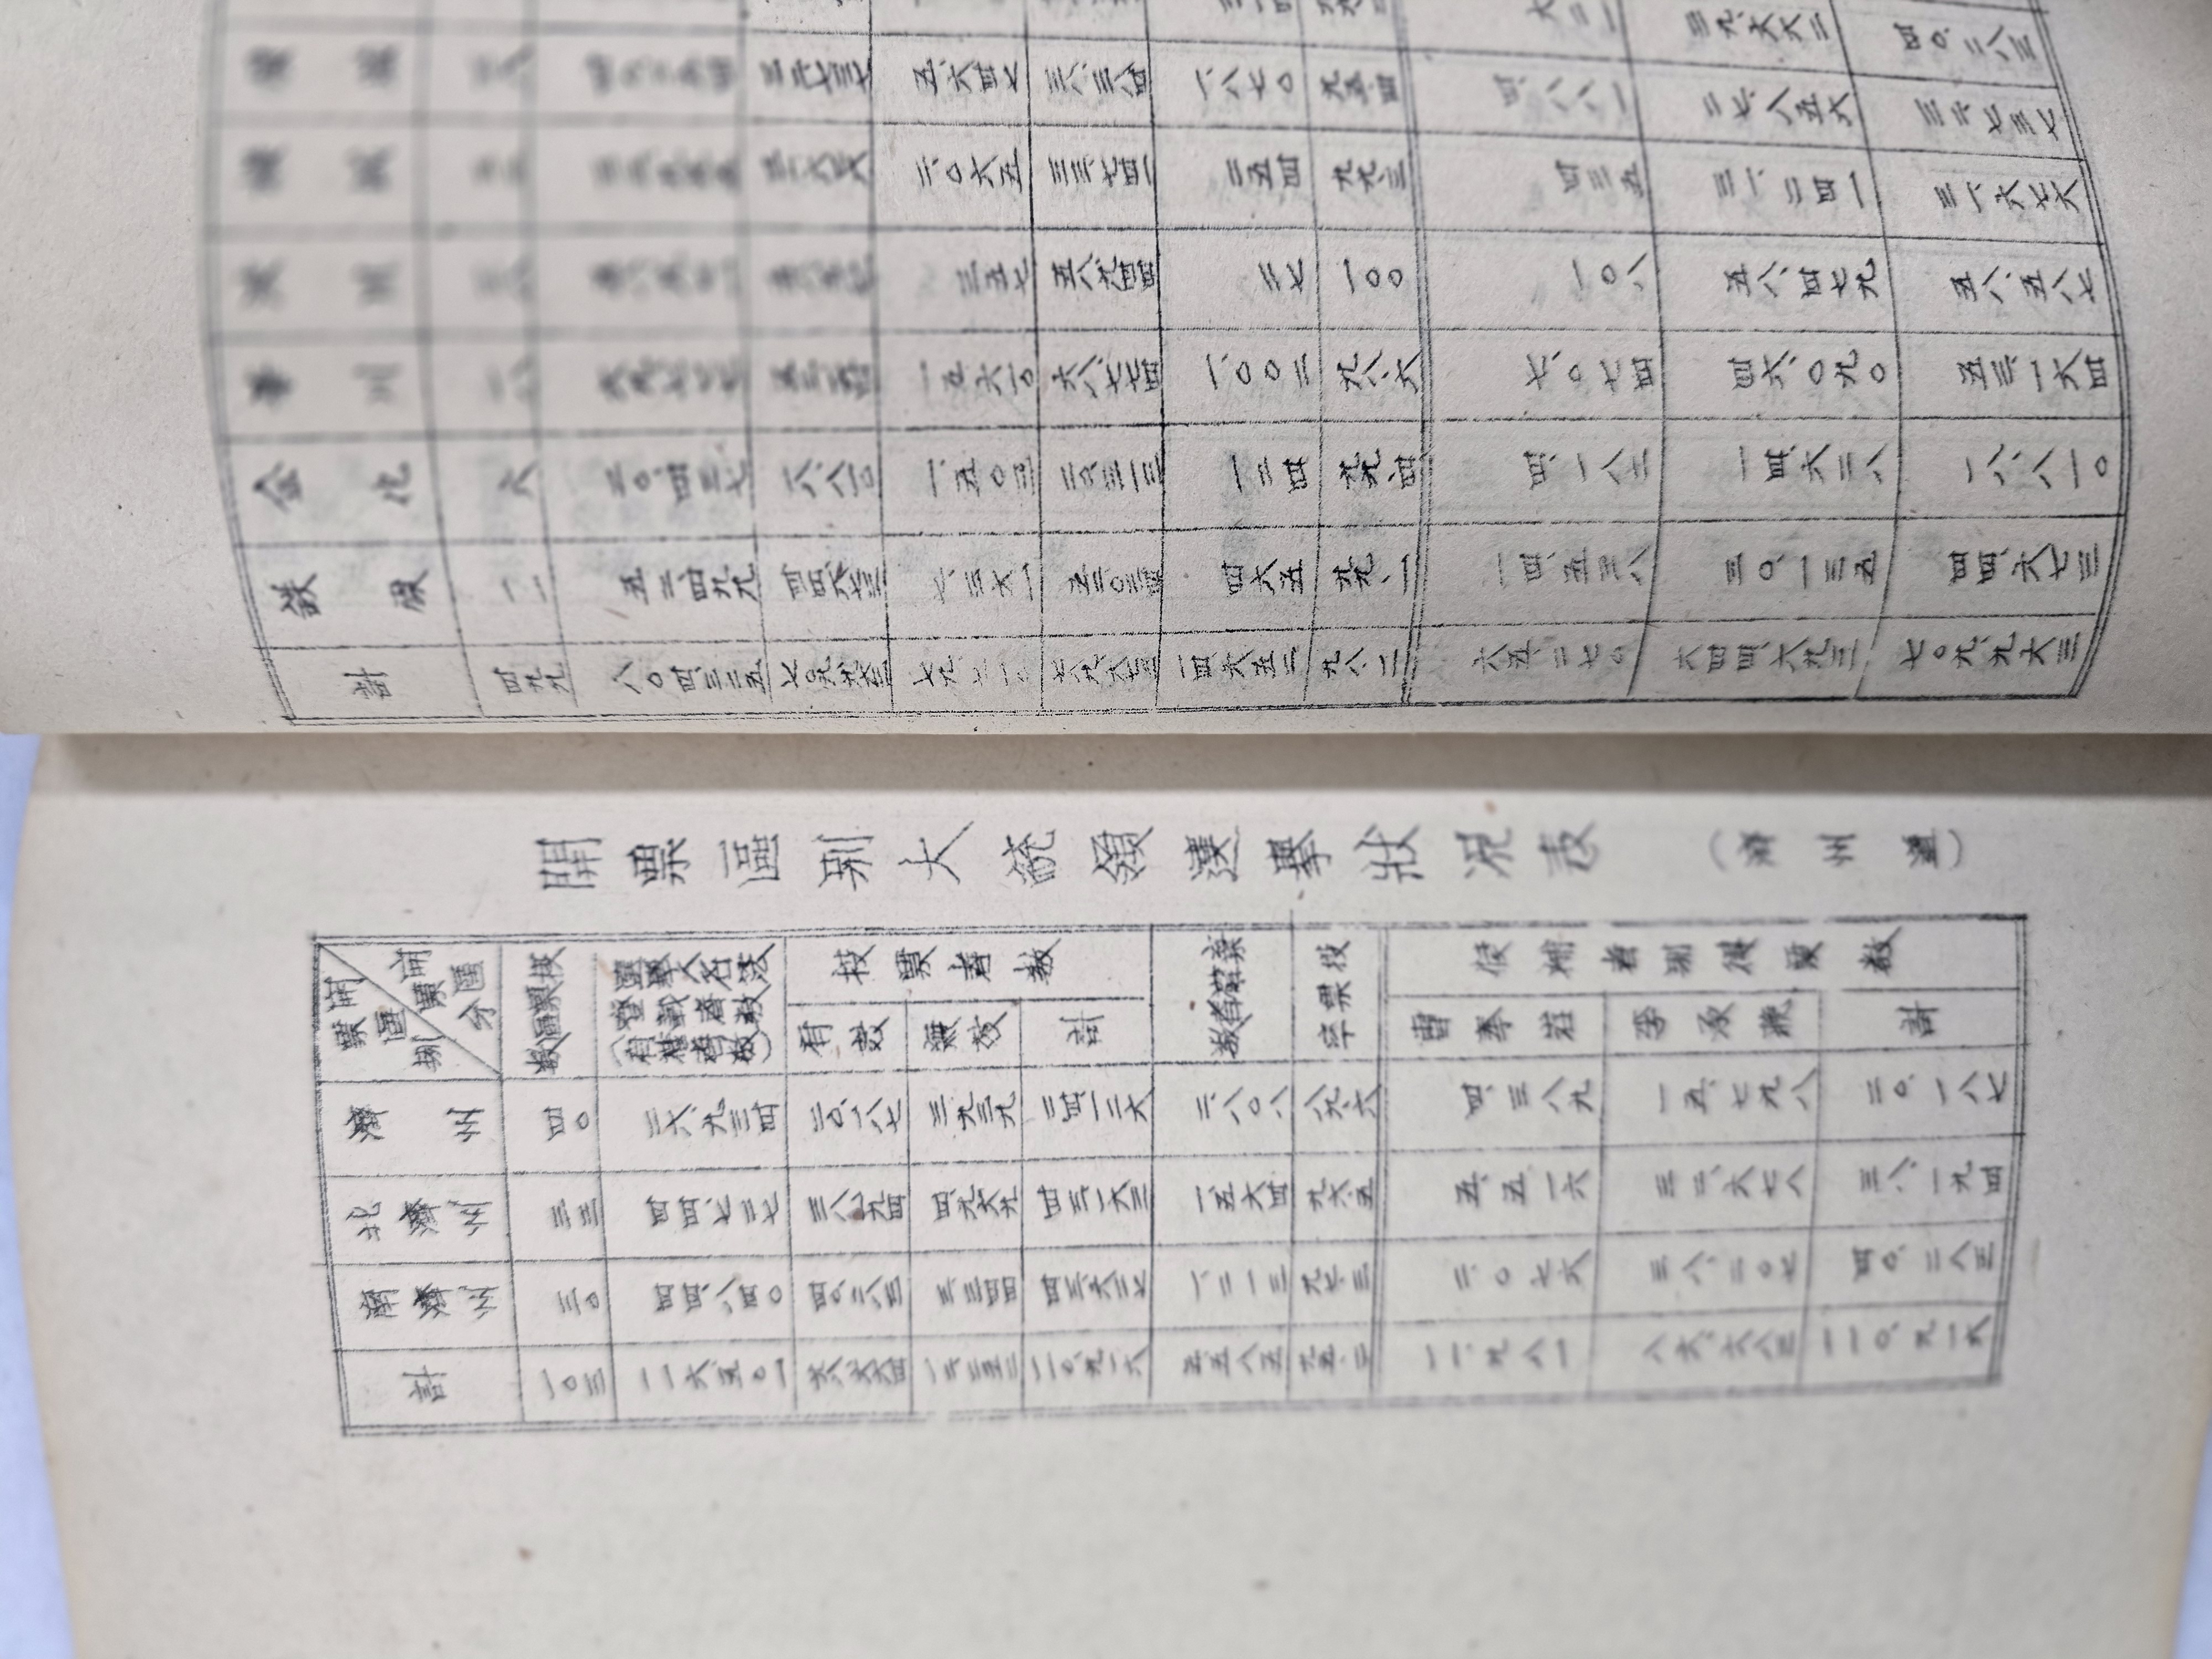 六二一 三九、六六二 四〇、二八三
三二、七三七 五、六四七 三八、三八四 一、八七〇 九五、四 四、八八一 二七、八五六 三二、七三七
三一、六七六 二、〇六五 三三、七四一 二五四 九九、三 四三五 三一、二四一 三一、六七六
三五七 五八、九四四 二七 一〇〇 一〇八 五八、四七九 五八、五八七
五三、一六四 一五、六一〇 六八、七七四 一、〇〇二 九八、六 七、〇七四 四六、〇九〇 五三、一六四
金化 六 二〇、四三七 一八、八一〇 一、五〇三 二〇、三一三 一二四 九九、四 四、一八二 一四、六二八 一八、八一〇
鉄原 一二 五二、四九九 四四、六七三 七、三六一 五二、〇三四 四六五 九九、一 一四、五三八 三〇、一三五 四四、六七三
計 四九九 八〇四、三二五 七〇九、九六三 七九、七一〇 七八九、六七三 一四、六五二 九八、二 六五、二七〇 六四四、六九三 七〇九、九六三
開票區別大統領選擧狀況表 （濟州道）
開票區分
開票區別
投票區數
選擧人名簿登載者數（有權者數）
投票者數
有效 無效 計
棄權者數
投票率
候補者別得票數
曺奉岩 李承晩 計
濟州 四〇 二六、九三四 二〇、一八七 三、九三九 二四、一二六 二、八〇八 八九、六 四、三八九 一五、七九八 二〇、一八七
北濟州 三三 四四、七二七 三八、一九四 四、九六九 四三、一六三 一、五六四 九六、五 五、五一六 三二、六七八 三八、一九四
南濟州 三〇 四四、八四〇 四〇、二八三 三、三四四 四三、六二七 一、二一三 九七、三 二、〇七六 三八、二〇七 四〇、二八三
計 一〇三 一一六、五〇一 九八、六六四 一二、二五二 一一〇、九一六 五、五八五 九五、二 一一、九八一 八六、六八三 一一〇、九一六